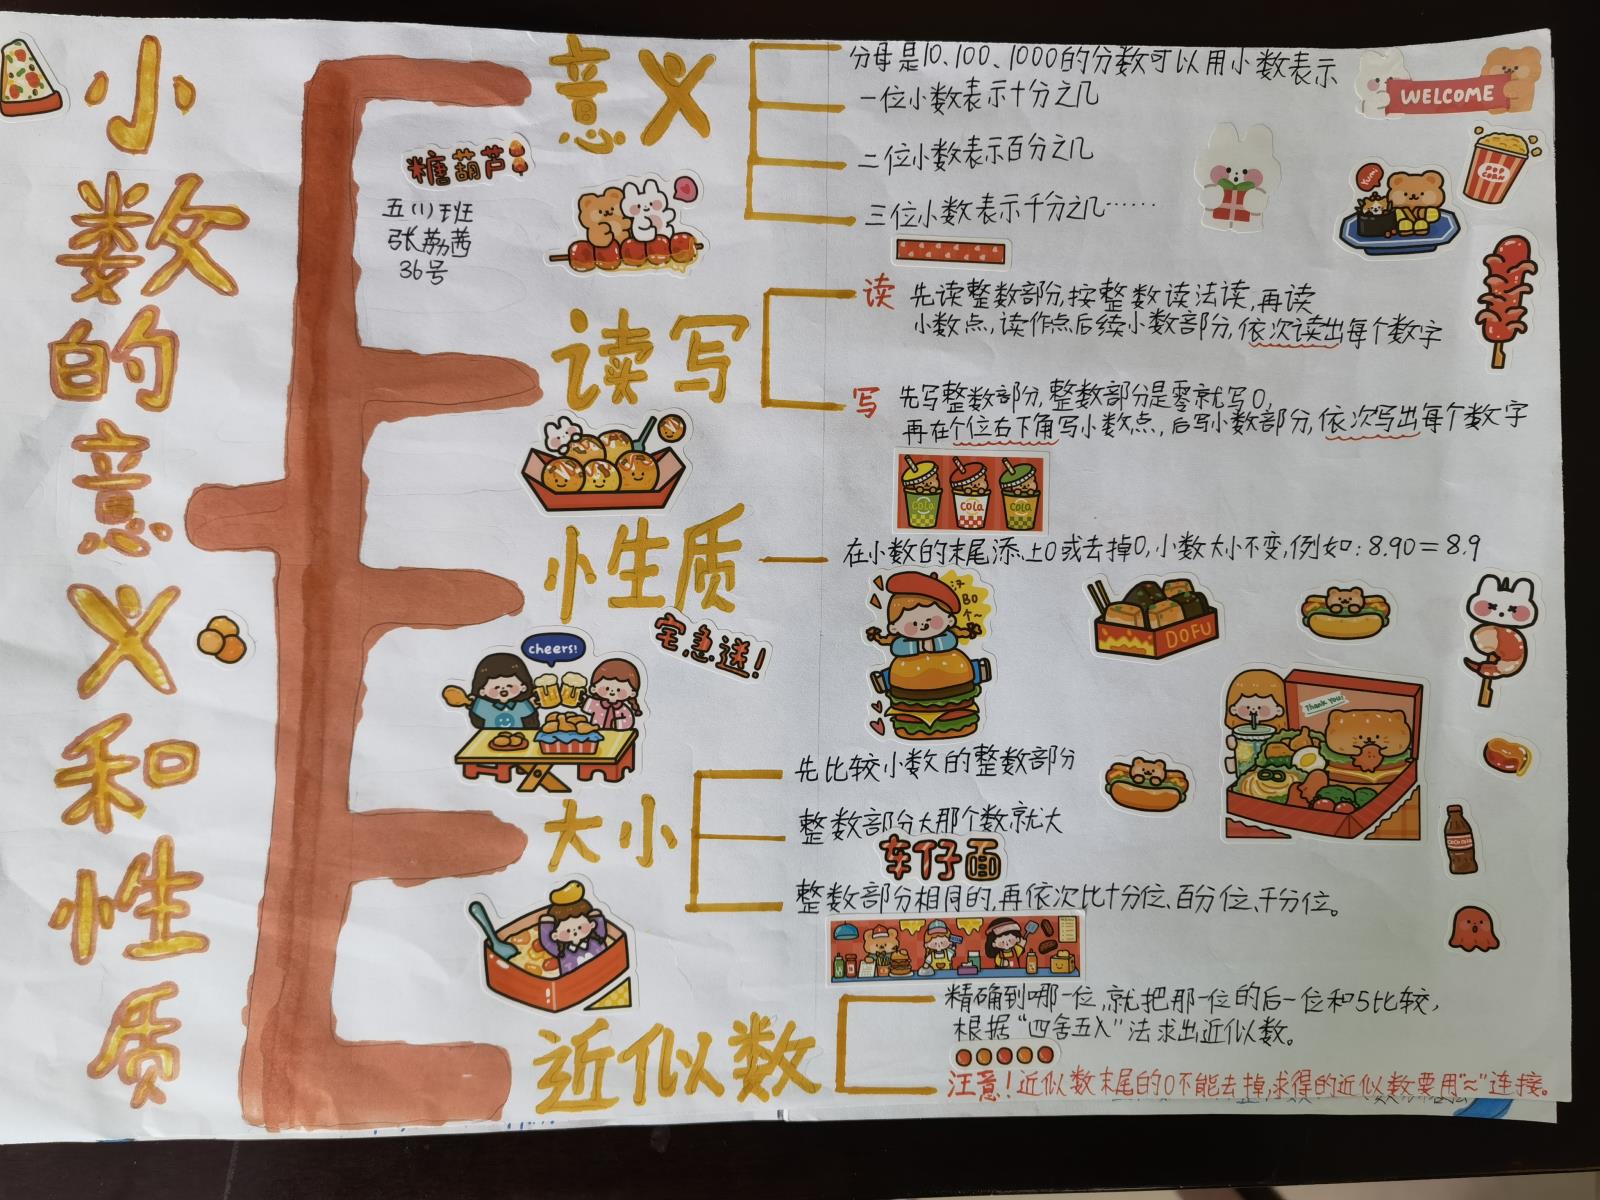 小数的意义和性质
糖葫芦
五(1)班
张荔茜
36号
意义
分母是10、100、1000的分数可以用小数表示
一位小数表示十分之几
二位小数表示百分之几
三位小数表示千分之几……
WELCOME
POP CORN
Yum!
读写
读
先读整数部分,按整数读法读,再读
小数点,读作点后续小数部分,依次读出每个数字
写
先写整数部分,整数部分是零就写0,
再在个位右下角写小数点,后写小数部分,依次写出每个数字
COLA
COLA
COLA
性质
在小数的末尾添上0或去掉0,小数大小不变,例如:8.90=8.9
宅急送!
cheers!
汉
BO
个~
DOFU
Thank You!
大小
先比较小数的整数部分
整数部分大那个数就大
车仔面
整数部分相同的,再依次比十分位、百分位、千分位。
近似数
精确到哪一位,就把那一位的后一位和5比较,
根据“四舍五入”法求出近似数。
汪意!近似数末尾的0不能去掉,求得的近似数要用“≈”连接。